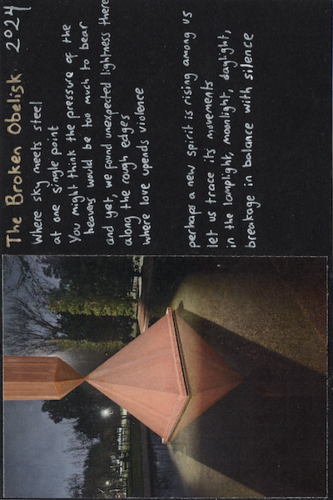 The Broken Obelisk 2024
Where sky meets steel
at one single point
You might think the pressure of the
heavens would be too much to bear
and yet, we found unexpected lightness there
along the rough edges
where love upends violence
perhaps a new spirit is rising among us
let us trace its movements
in the lamplight, moonlight, daylight,
breakage in balance with silence